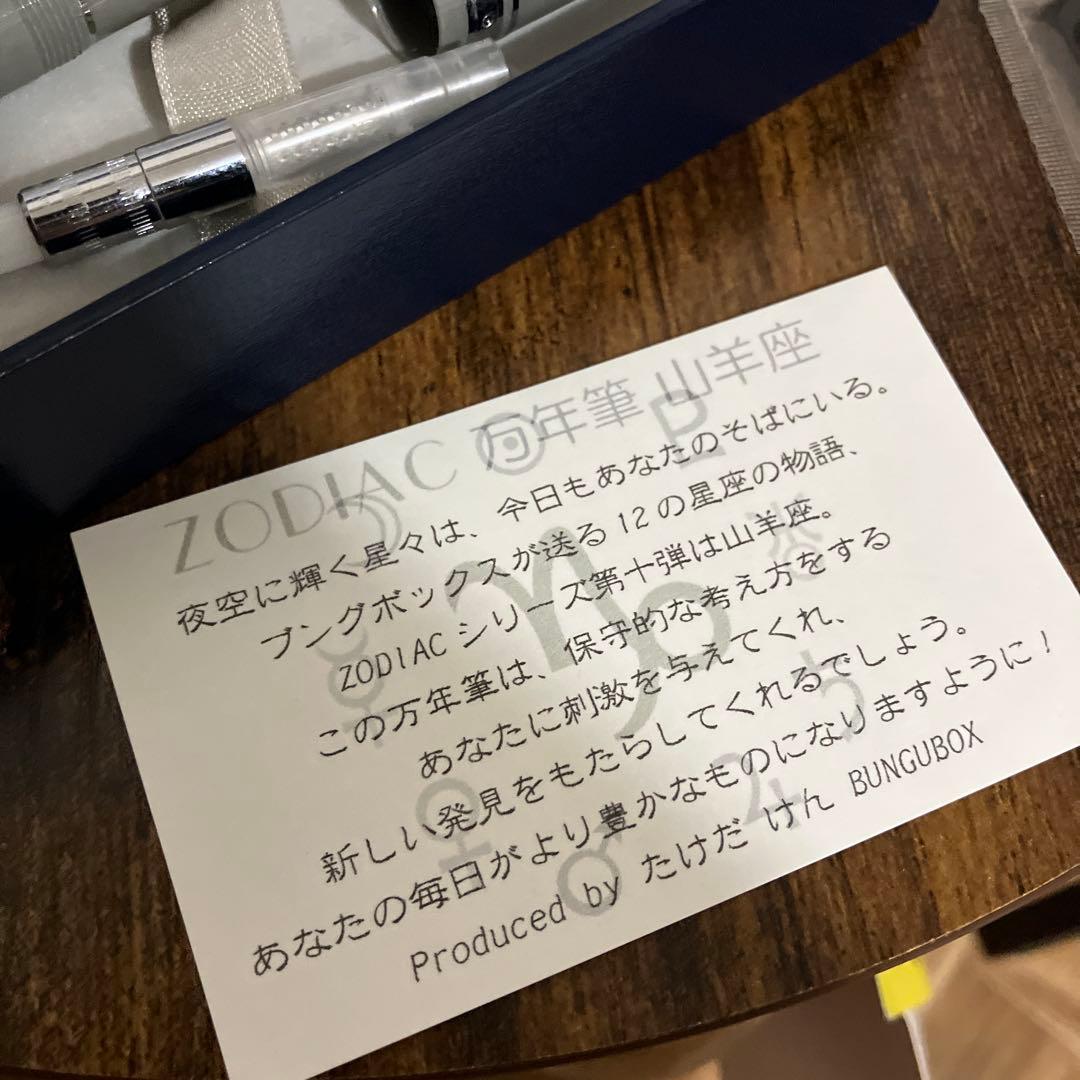 ZODIAC 万年筆 山羊座
夜空に輝く星々は、今日もあなたのそばにいる。
ブングボックスが送る12の星座の物語、
ZODIACシリーズ第十弾は山羊座。
この万年筆は、保守的な考え方をする
あなたに刺激を与えてくれ、
新しい発見をもたらしてくれるでしょう。
あなたの毎日がより豊かなものになりますように！
Produced by たけだ けん BUNGUBOX